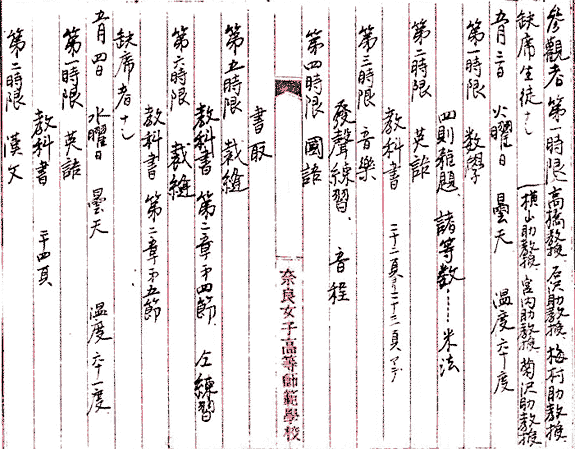 参観者 第一時限 高橋教授、石沢助教授、梅村助教授
横山助教授、宮内助教授、菊沢助教授
缺席生徒ナシ
五月三日 火曜日 曇天 温度六十度
第一時限 数学
四則雑題、諸等数……米法
第二時限 英語
教科書 二十二頁ヨリ二十三頁マデ
第三時限 音樂
發聲練習、音程
第四時限 國語
奈良女子高等師範學校
書取
第五時限 裁縫
教科書 第二章第四節、仝練習
第六時限 裁縫
教科書 第二章第五節
缺席者ナシ
五月四日 水曜日 曇天 温度六十一度
第一時限 英語
教科書 二十四頁
第二時限 漢文